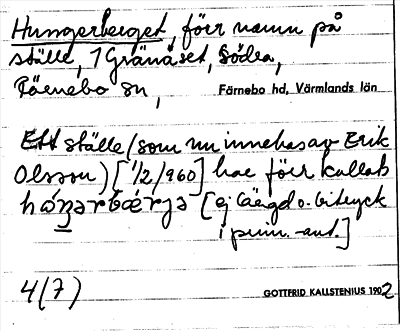 Hungerberget, förr namn på
ställe, 7 Gränäset, Södra,
Färnebo sn,
Färnebo hd, Värmlands län
Ett ställe (som nu innehas av Erik
Olsson) [1/2/960] har förr kallats
[ej längd o. bitryck
i prim.-ant.]
4(7)
GOTTFRID KALLSTENIUS 1902